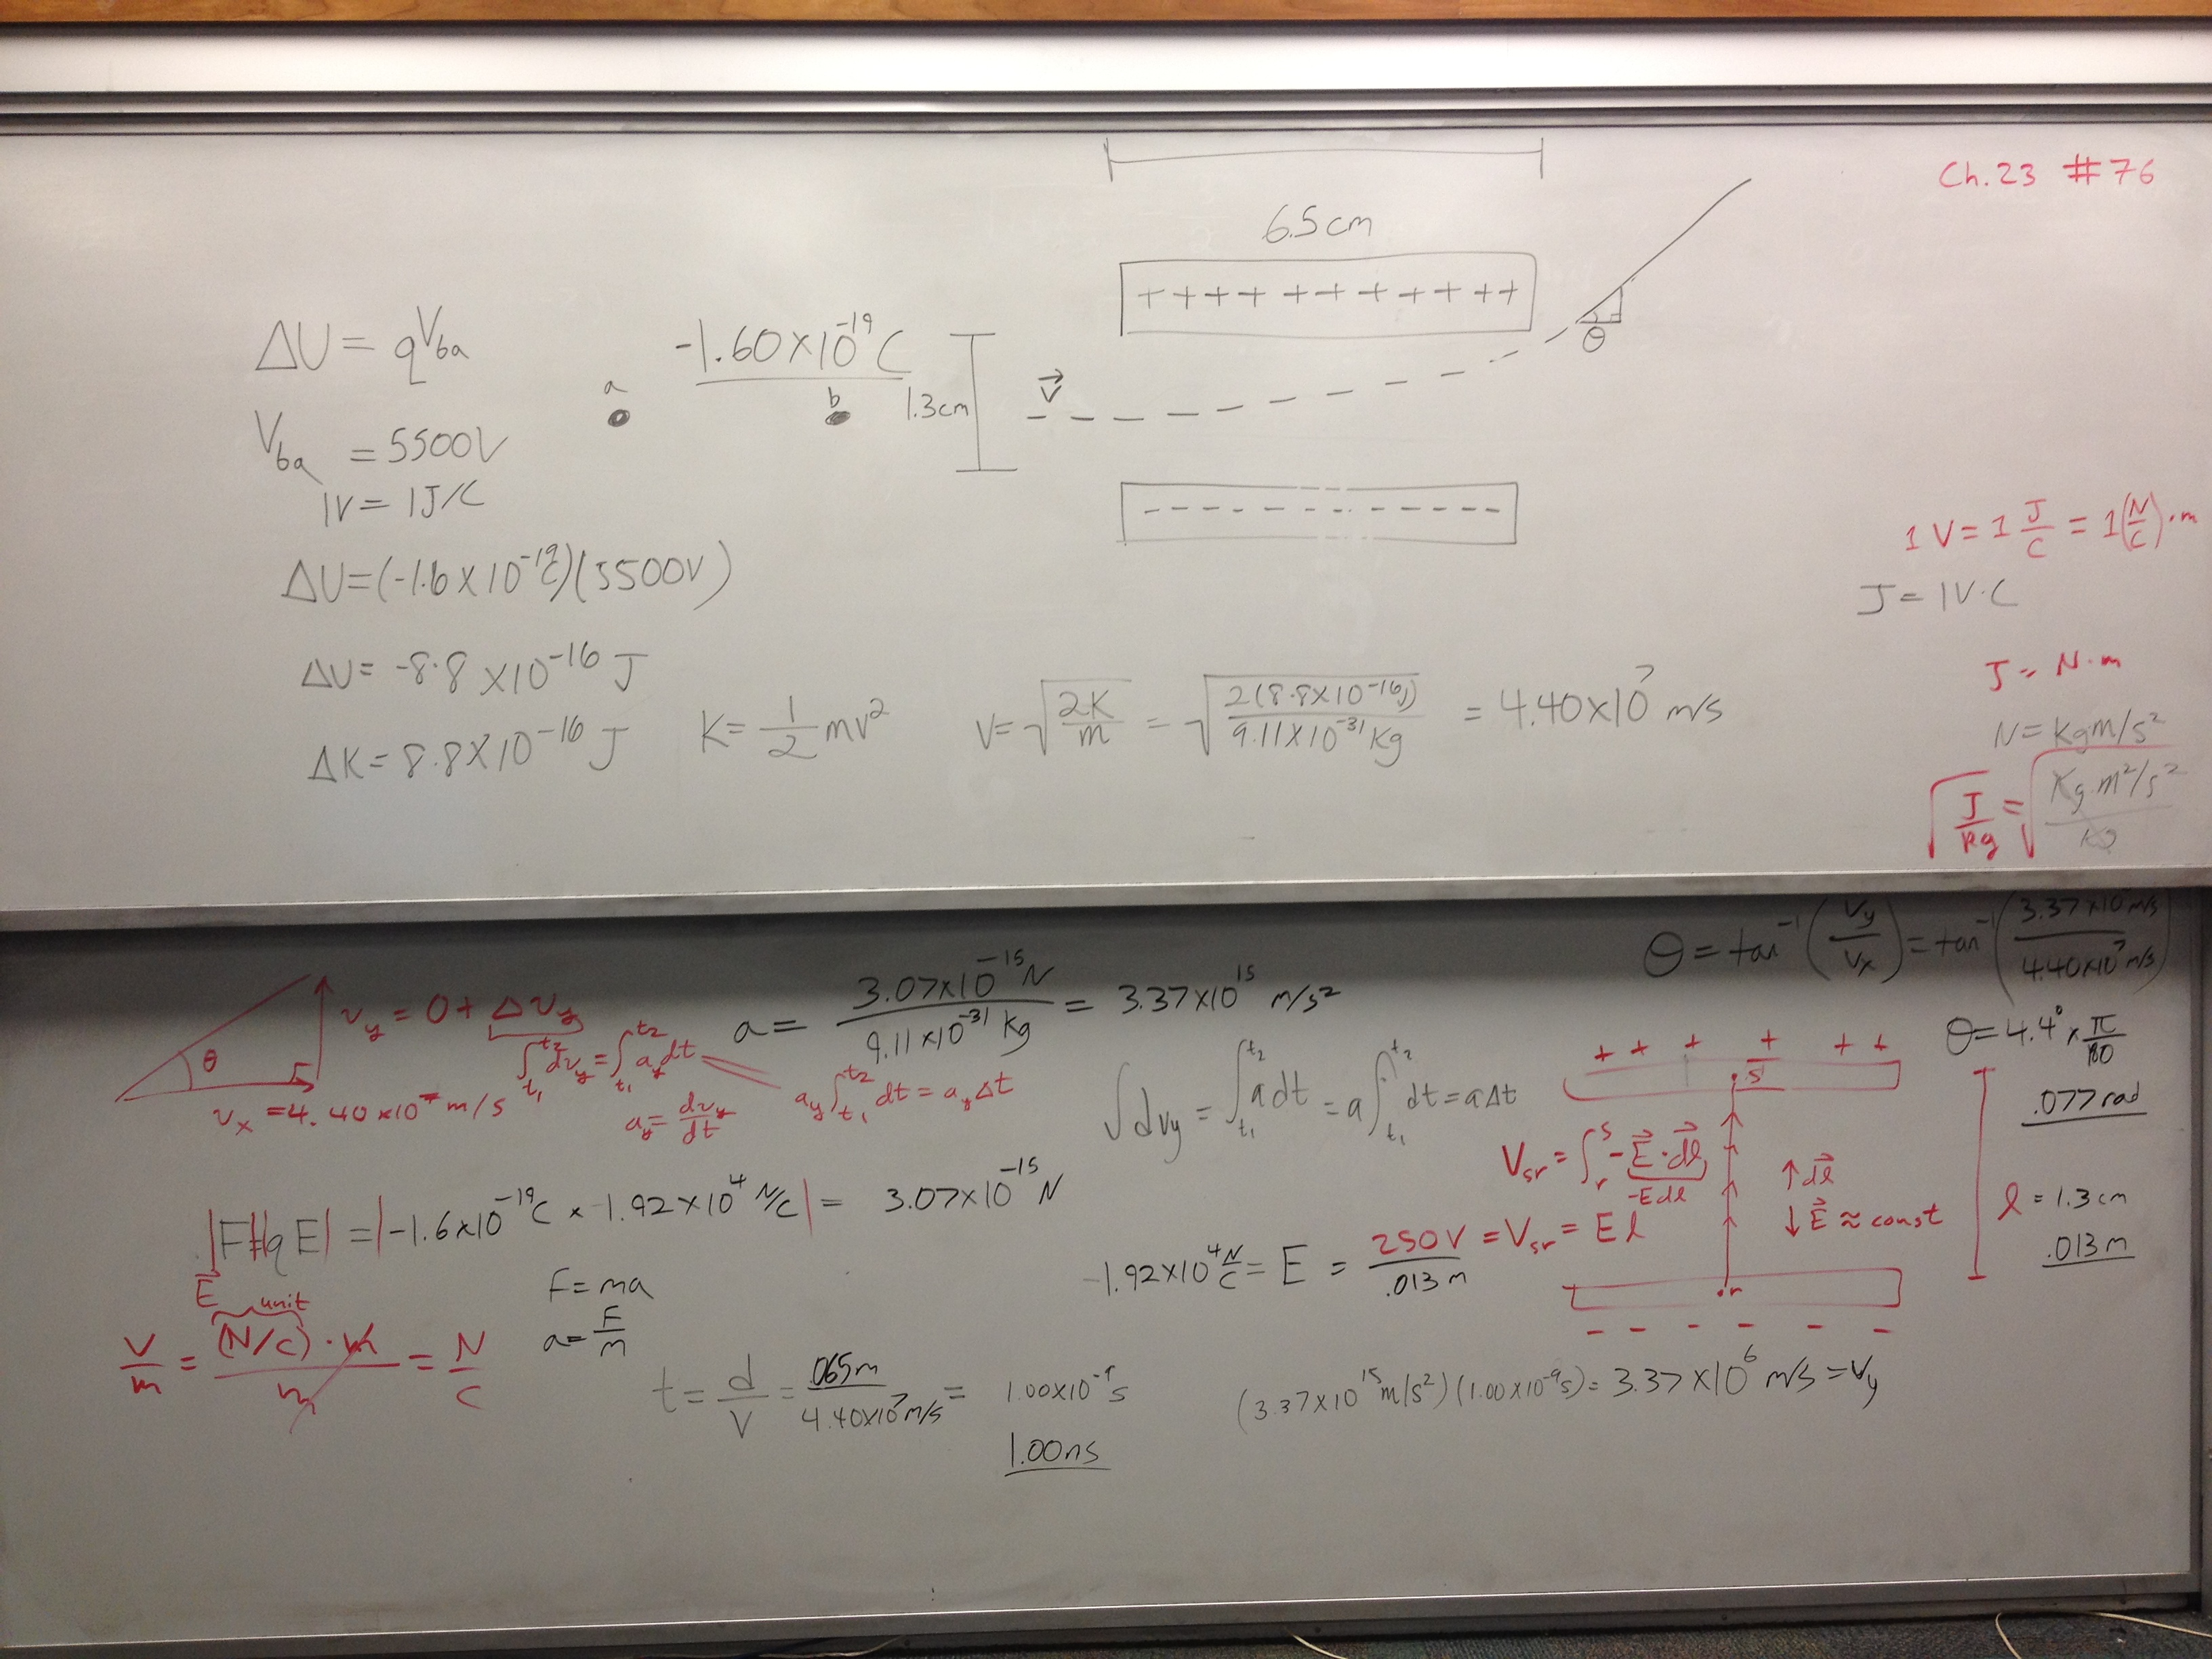 Ch.23 #76
6.5cm
+ + + + + + + + + + +
θ
ΔU = qVba
-1.60×10⁻¹⁹C
a
b
1.3cm
v⃗
Vba = 5500V
1V = 1J/C
- - - - - - - - - - -
1 V = 1 J/C = 1(N/C)·m
ΔU=(-1.6×10⁻¹⁹C)(5500V)
J = 1V·C
ΔU= -8.8×10⁻¹⁶ J
J = N·m
ΔK=8.8×10⁻¹⁶ J
K = 1/2 mv²
V=√(2K/m) = √(2(8.8×10⁻¹⁶J)/9.11×10⁻³¹kg) = 4.40×10⁷ m/s
N = kgm/s²
√(J/kg) = √(Kg·m²/s²/kg)
θ = tan⁻¹(Vy/Vx) = tan⁻¹(3.37×10 m/s/4.40×10⁷m/s)
θ
vy = 0 + Δvy
∫t1t2 dvy = ∫t1t2 aydt
vx =4.40×10⁷ m/s
ay = dvy/dt
ay∫t1t2 dt = ayΔt
a = 3.07×10⁻¹⁵N/9.11×10⁻³¹ kg = 3.37×10¹⁵ m/s²
∫dvy = ∫t1t2 adt = a∫t1t2 dt = aΔt
+ + + + + +
s
θ=4.4°×π/180
.077rad
Vsr = ∫rs -E⃗·dl⃗
-Edl
↑dl⃗
↓E⃗ ≈ const
l = 1.3cm
.013m
|F|=|qE| = |-1.6×10⁻¹⁹C × -1.92×10⁴ N/C| = 3.07×10⁻¹⁵N
-1.92×10⁴ N/C = E = 250V/.013m = Vsr = El
r
- - - - - -
E
unit
V/m = (N/C)·m/m = N/C
F=ma
a=F/m
t = d/V = .065m/4.40×10⁷m/s = 1.00×10⁻⁹s
1.00ns
(3.37×10¹⁵m/s²)(1.00×10⁻⁹s)=3.37×10⁶ m/s=Vy